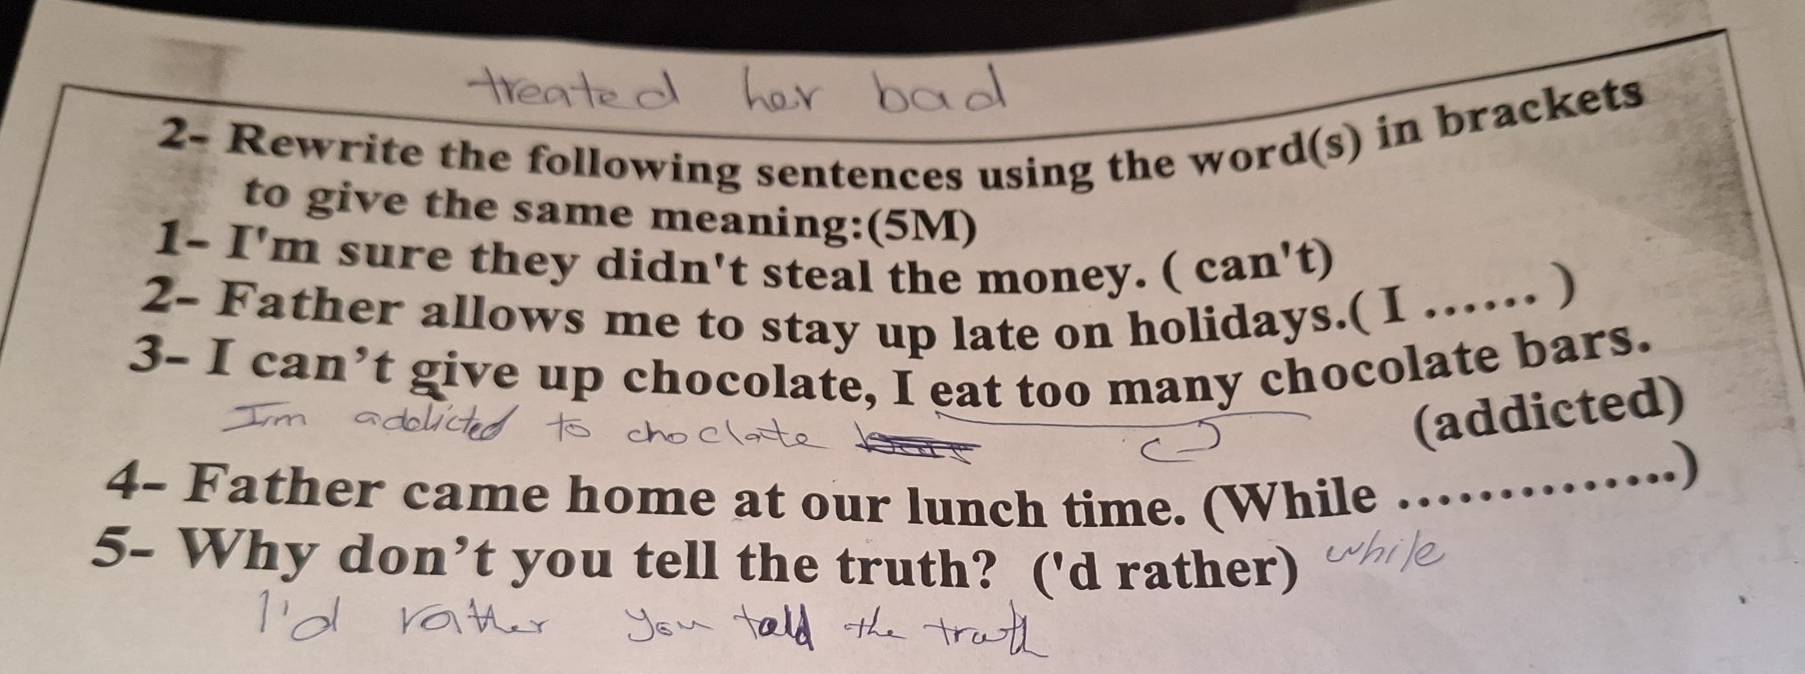 treated her bad
2- Rewrite the following sentences using the word(s) in brackets
to give the same meaning:(5M)
1- I'm sure they didn't steal the money. ( can't)
2- Father allows me to stay up late on holidays.( I ...... )
3- I can't give up chocolate, I eat too many chocolate bars.
(addicted)
I'm addicted to choclate
4- Father came home at our lunch time. (While ..............)
5- Why don't you tell the truth? ('d rather)
while
I'd rather you told the truth